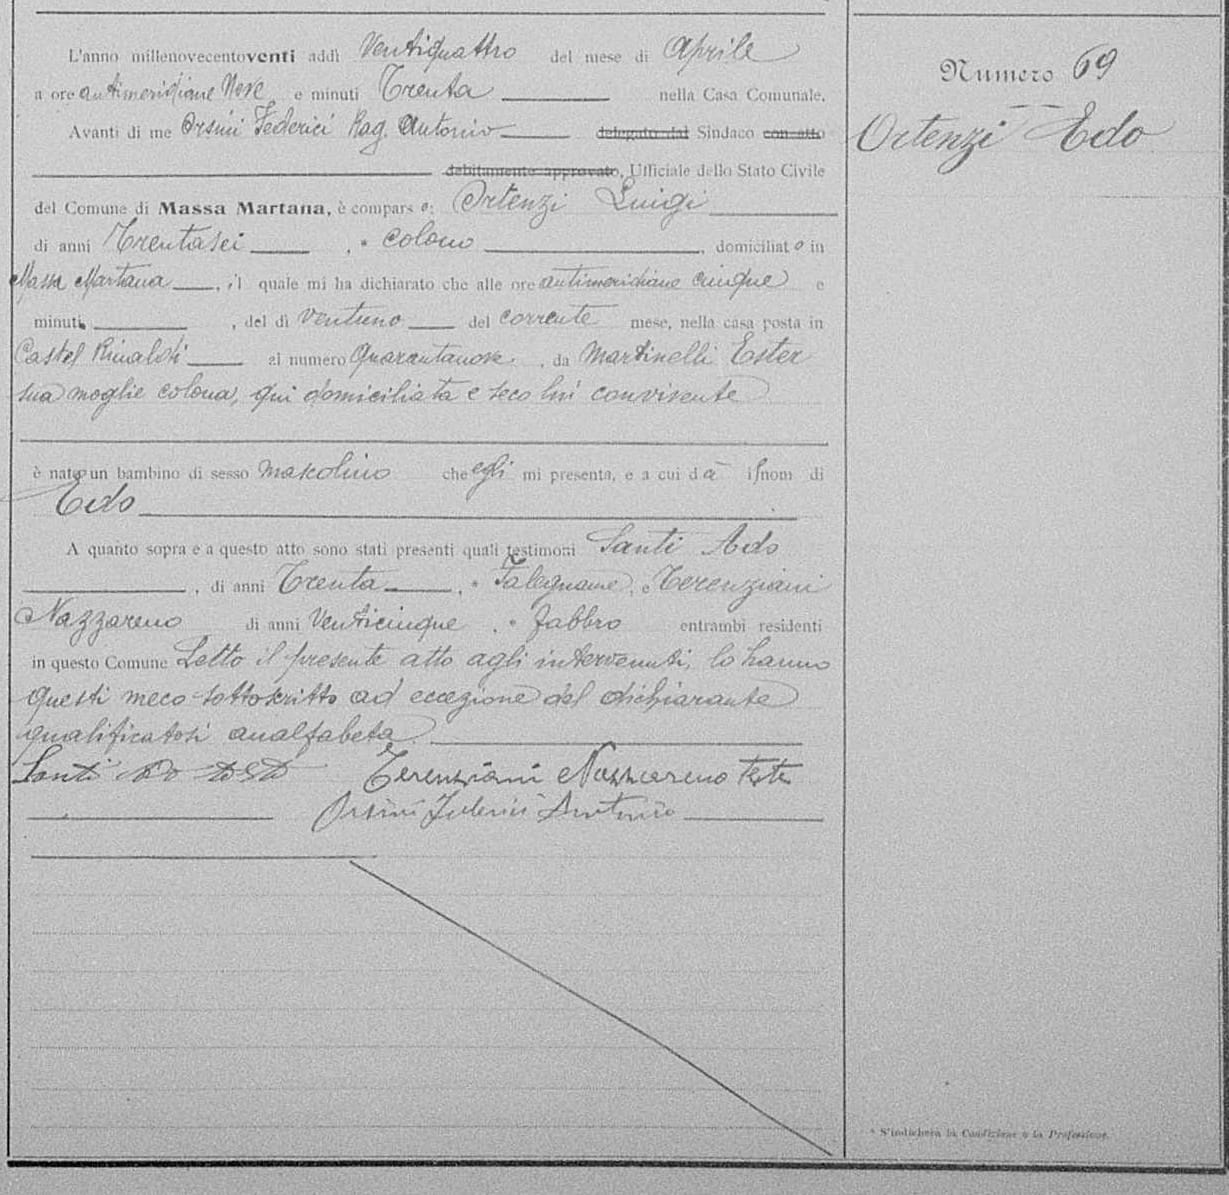 L'anno millenovecentoventi addì Ventiquattro del mese di Aprile
a ore antimeridiane Nove e minuti Trenta nella Casa Comunale.
Avanti di me Orsini Federici Rag. Antonio delegato dal Sindaco con atto
debitamente approvato, Ufficiale dello Stato Civile
del Comune di Massa Martana, è compars o: Ortenzi Luigi
di anni Trentasei, * colono, domiciliat o in
Massa Martana, il quale mi ha dichiarato che alle ore antimeridiane cinque e
minuti, del dì ventuno del corrente mese, nella casa posta in
Castel Rinaldi al numero Quarantanove, da Martinelli Ester
sua moglie colona, qui domiciliata e seco lui convivente
è nato un bambino di sesso mascolino che egli mi presenta, e a cui dà il nom di
Edo
A quanto sopra e a questo atto sono stati presenti quali testimoni Santi Ado
, di anni Trenta, * Falegname, e Terenziani
Nazzareno di anni Venticinque, * fabbro entrambi residenti
in questo Comune Letto il presente atto agli intervenuti, lo hanno
questi meco sottoscritto ad eccezione del dichiarante
qualificatosi analfabeta.
Santi Terenziani Nazzareno Teste
Orsini Federici Antonio
Numero 69
Ortenzi Edo
* S'indicherà la Condizione o la Professione.